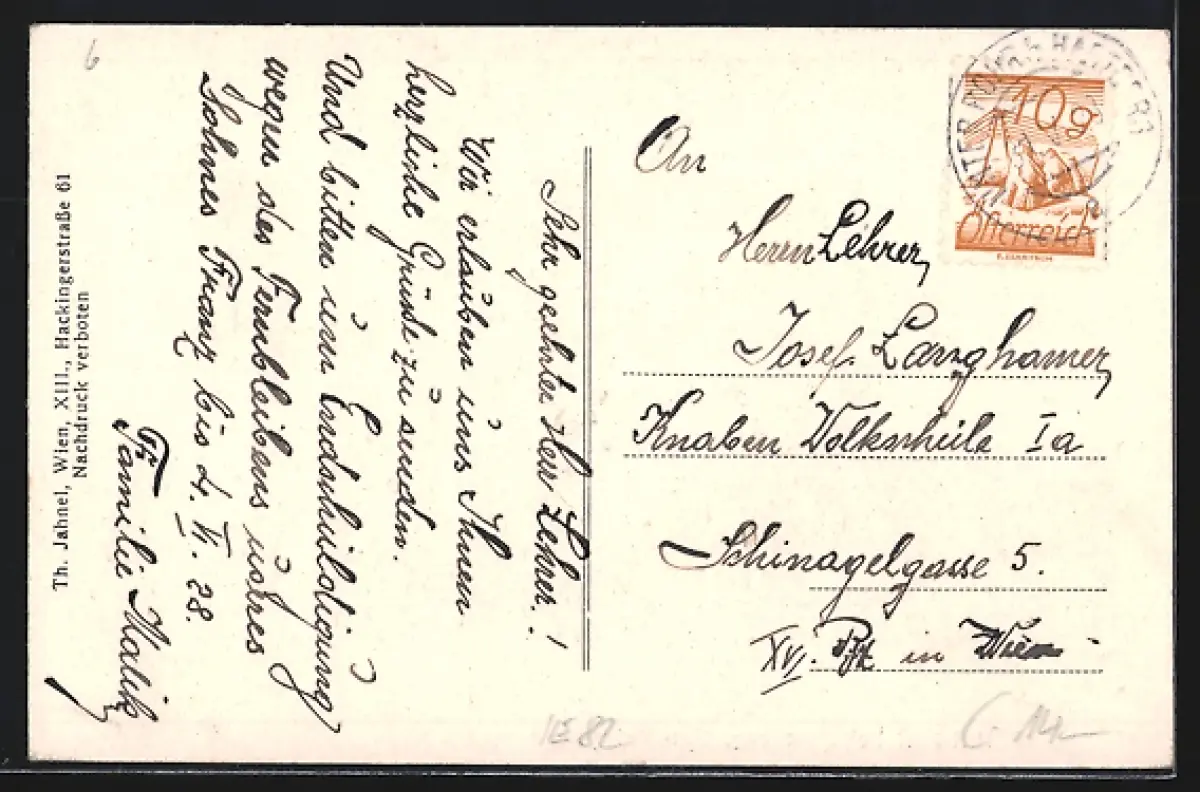 Th. Jahnel, Wien, XIII., Hackingerstraße 61
Nachdruck verboten
Sehr geehrter Herr Lehrer!
Wir erlauben uns Ihnen
herzliche Grüße zu senden.
Und bitten um Endschuildigung
wegen des Fernbleibens uhres
Sohnes Franz bis 4. VI. 28.
Familie Malik
10g
Österreich
An
Herrn Lehrer,
Josef Langhamer,
Knaben Volksscheile Ia
Schinagelgasse 5.
XVI. Bzk in Wien
6